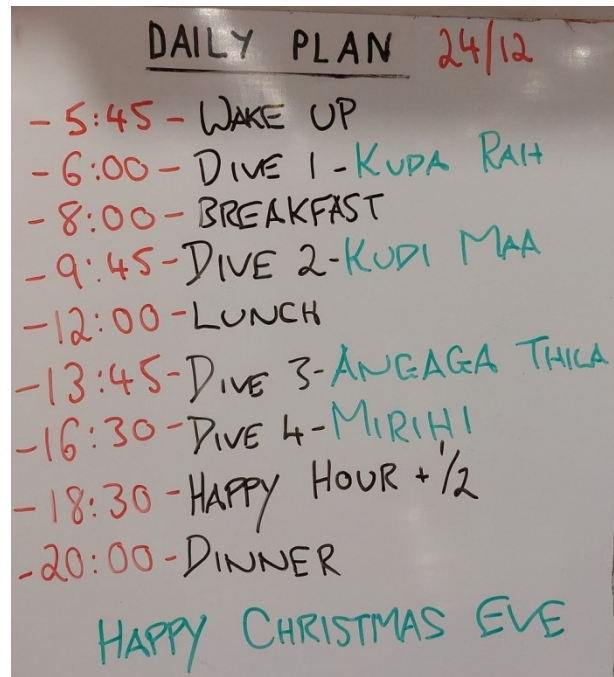 DAILY PLAN 24/12
- 5:45 - WAKE UP
- 6:00 - DIVE 1 - KUDA RAH
- 8:00 - BREAKFAST
- 9:45 - DIVE 2 - KUDI MAA
- 12:00 - LUNCH
- 13:45 - DIVE 3 - ANGAGA THILA
- 16:30 - DIVE 4 - MIRIHI
- 18:30 - HAPPY HOUR + 1/2
- 20:00 - DINNER
HAPPY CHRISTMAS EVE